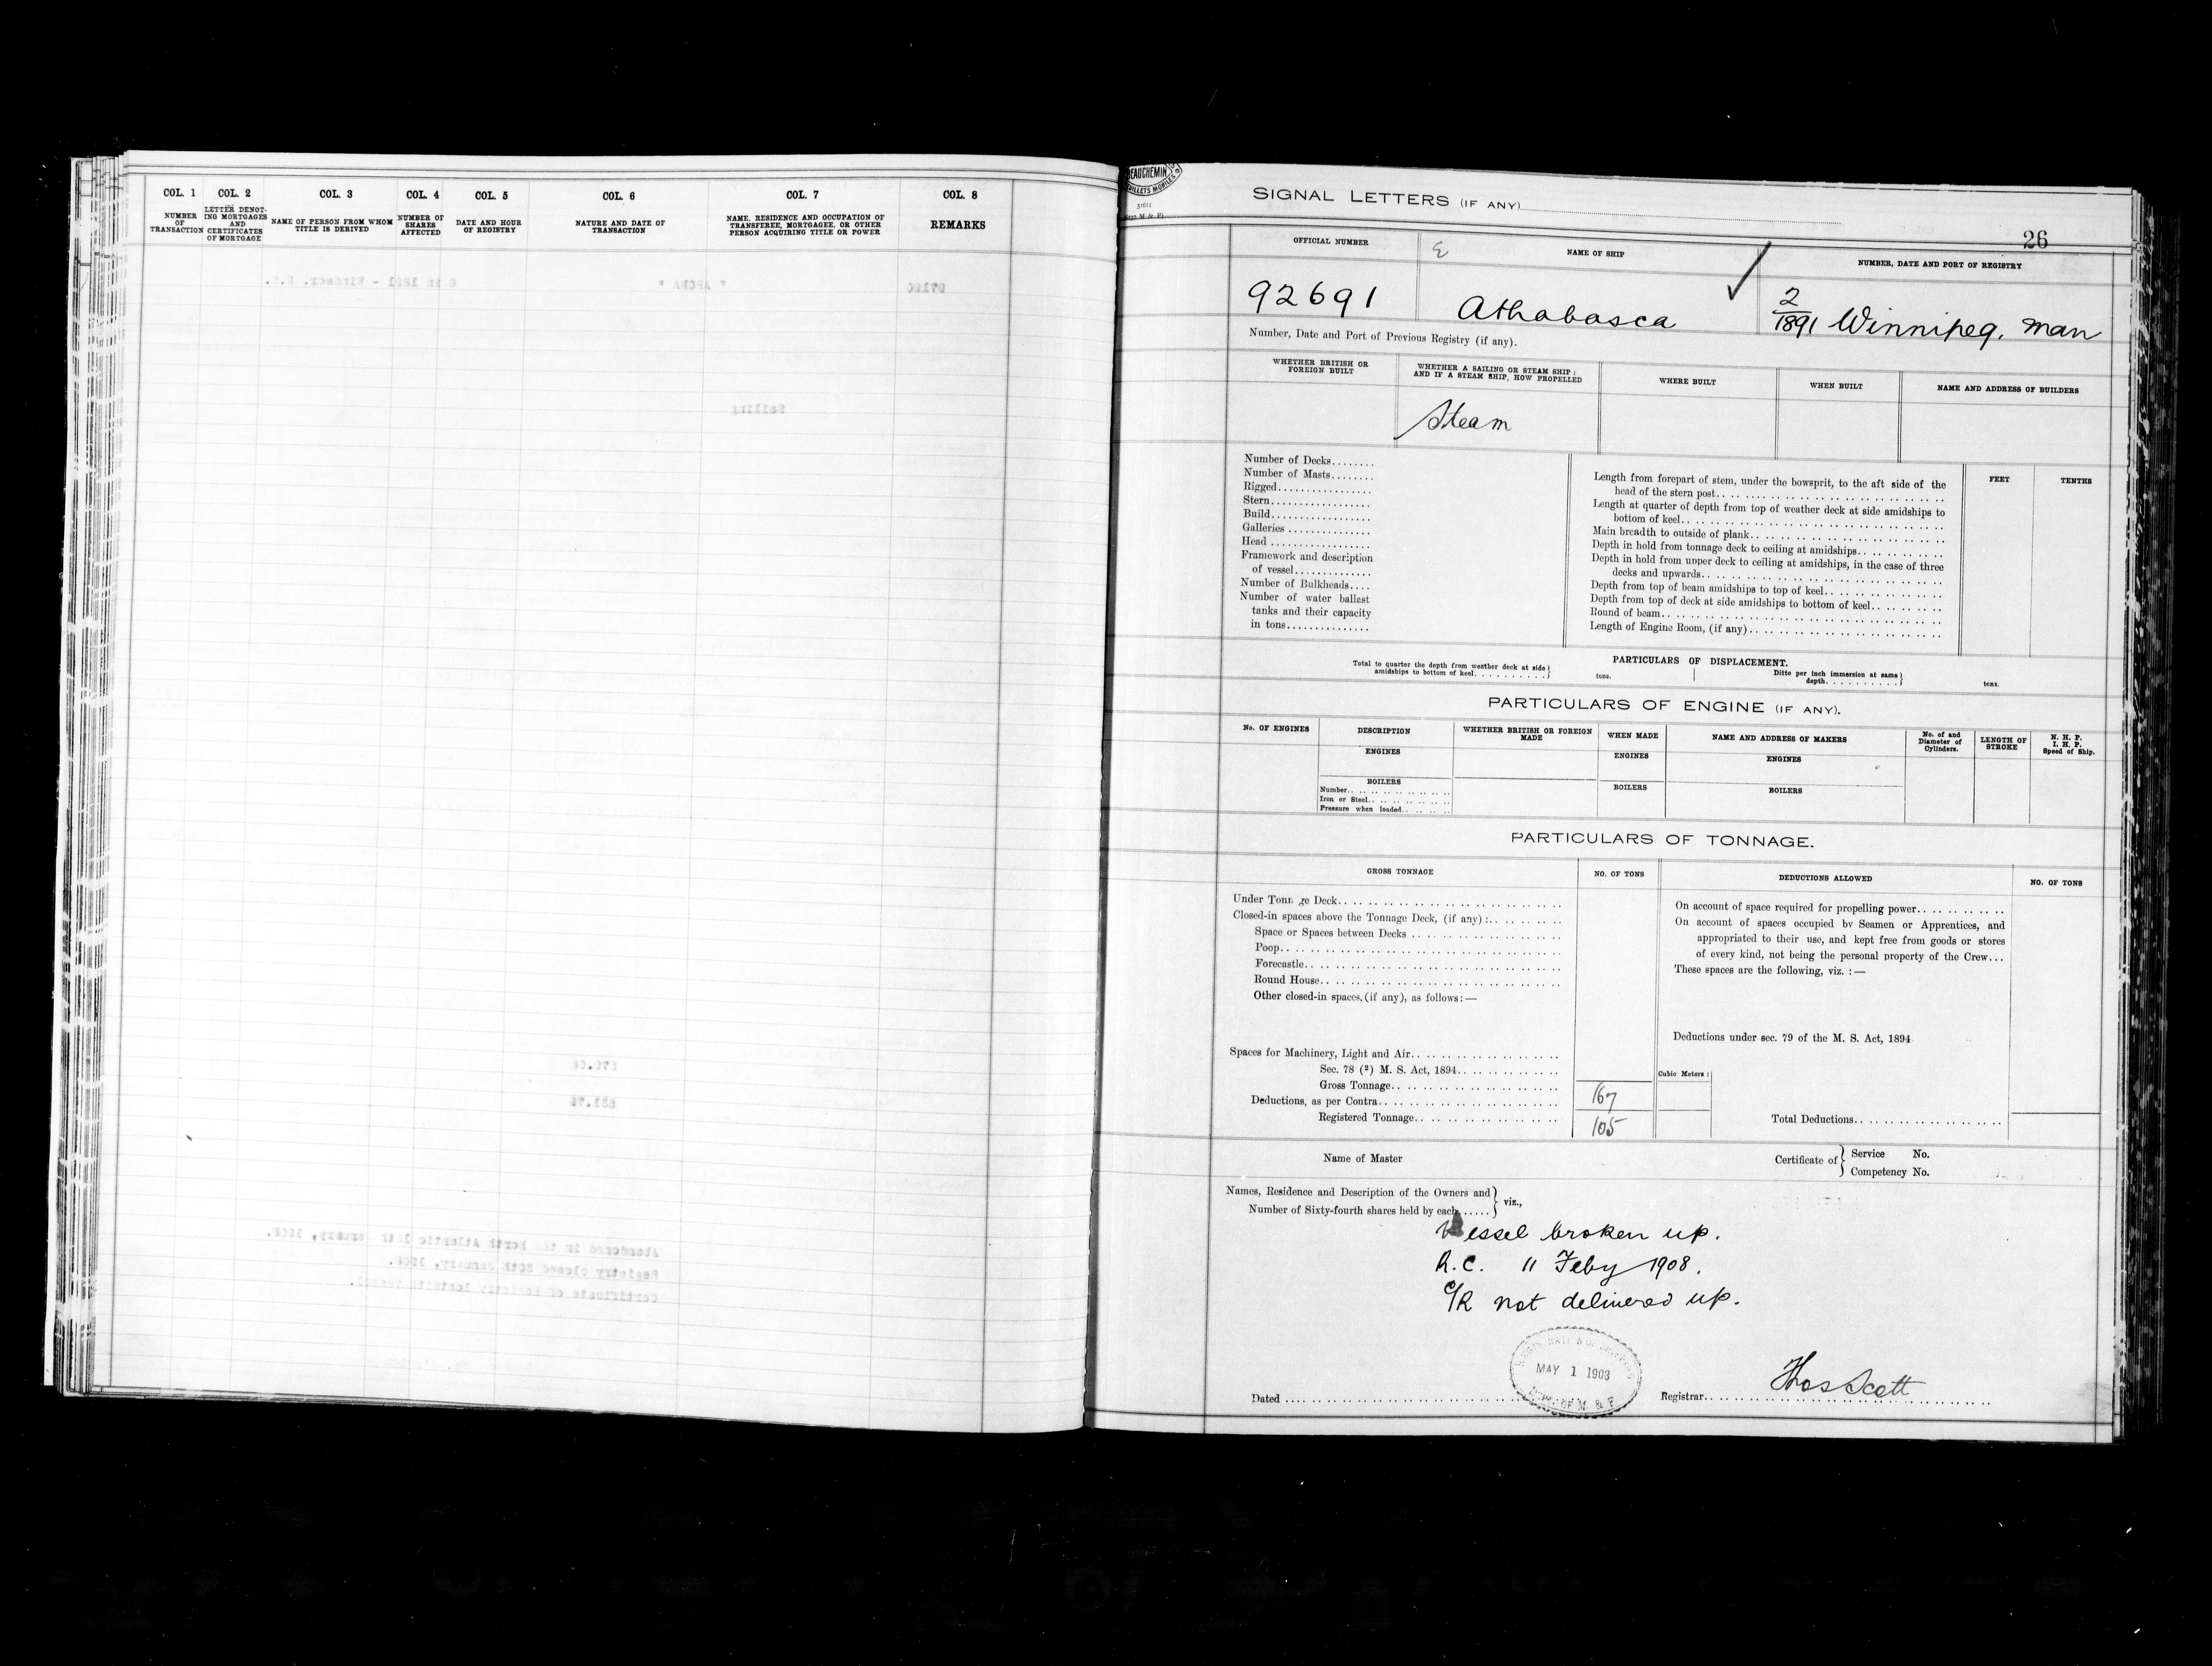 COL. 1
COL. 2
COL. 3
COL. 4
COL. 5
COL. 6
COL. 7
COL. 8
NUMBER OF TRANSACTION
LETTER DENOTING MORTGAGES AND CERTIFICATES OF MORTGAGE
NAME OF PERSON FROM WHOM TITLE IS DERIVED
NUMBER OF SHARES AFFECTED
DATE AND HOUR OF REGISTRY
NATURE AND DATE OF TRANSACTION
NAME, RESIDENCE AND OCCUPATION OF TRANSFEREE, MORTGAGEE, OR OTHER PERSON ACQUIRING TITLE OR POWER
REMARKS
SIGNAL LETTERS (IF ANY)
26
OFFICIAL NUMBER
NAME OF SHIP
NUMBER, DATE AND PORT OF REGISTRY
92691
Athabasca
2/1891 Winnipeg, Man
Number, Date and Port of Previous Registry (if any).
WHETHER BRITISH OR FOREIGN BUILT
WHETHER A SAILING OR STEAM SHIP; AND IF A STEAM SHIP, HOW PROPELLED
WHERE BUILT
WHEN BUILT
NAME AND ADDRESS OF BUILDERS
Steam
Number of Decks........
Number of Masts........
Rigged
Stern
Build
Galleries
Head
Framework and description
of vessel
Number of Bulkheads....
Number of water ballast
tanks and their capacity
in tons
FEET
TENTHS
Length from forepart of stem, under the bowsprit, to the aft side of the
head of the stern post
Length at quarter of depth from top of weather deck at side amidships to
bottom of keel
Main breadth to outside of plank
Depth in hold from tonnage deck to ceiling at amidships
Depth in hold from upper deck to ceiling at amidships, in the case of three
decks and upwards
Depth from top of beam amidships to top of keel
Depth from top of deck at side amidships to bottom of keel
Round of beam
Length of Engine Room, (if any)
PARTICULARS OF DISPLACEMENT.
Total to quarter the depth from weather deck at side
amidships to bottom of keel
tons.
Ditto per inch immersion at same
depth
tons.
PARTICULARS OF ENGINE (IF ANY).
No. OF ENGINES
DESCRIPTION
WHETHER BRITISH OR FOREIGN MADE
WHEN MADE
NAME AND ADDRESS OF MAKERS
No. of and Diameter of Cylinders.
LENGTH OF STROKE
N. H. P.
I. H. P.
Speed of Ship.
ENGINES
ENGINES
ENGINES
BOILERS
BOILERS
BOILERS
Number
Iron or Steel
Pressure when loaded
PARTICULARS OF TONNAGE.
GROSS TONNAGE
NO. OF TONS
DEDUCTIONS ALLOWED
NO. OF TONS
Under Tonn ge Deck
Closed-in spaces above the Tonnage Deck, (if any) :
Space or Spaces between Decks
Poop
Forecastle
Round House
Other closed-in spaces, (if any), as follows: —
Spaces for Machinery, Light and Air
Sec. 78 (2) M. S. Act, 1894
Gross Tonnage
167
Deductions, as per Contra
Registered Tonnage
105
Cubic Meters :
On account of space required for propelling power
On account of spaces occupied by Seamen or Apprentices, and
appropriated to their use, and kept free from goods or stores
of every kind, not being the personal property of the Crew...
These spaces are the following, viz. : —
Deductions under sec. 79 of the M. S. Act, 1894
Total Deductions
Name of Master
Certificate of
Service No.
Competency No.
Names, Residence and Description of the Owners and
Number of Sixty-fourth shares held by each
viz.,
Vessel broken up.
R.C. 11 Feby 1908.
C/R not delivered up.
MAY 1 1908
Dated
Registrar
Thos Scott